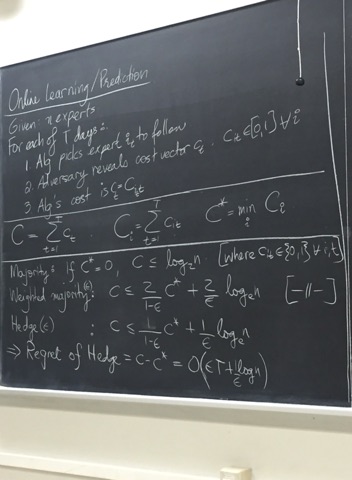 Online Learning/Prediction
Given: n experts
For each of T days:
1. Alg picks expert i_t to follow
2. Adversary reveals cost vector c_t. c_it ∈ [0,1] ∀i
3 Alg's cost is c_t = c_{i_t t}
C = Σ_{t=1}^{T} c_t C_i = Σ_{t=1}^{T} c_it C* = min_i C_i
Majority: if C* = 0, C ≤ log_2 n. [where c_it ∈ {0,1} ∀ i,t]
Weighted majority(ε): C ≤ 2/(1-ε) C* + 2/ε log_e n [-//-]
Hedge(ε) : C ≤ 1/(1-ε) C* + 1/ε log_e n
⇒ Regret of Hedge = C - C* = O(εT + 1/ε log n)